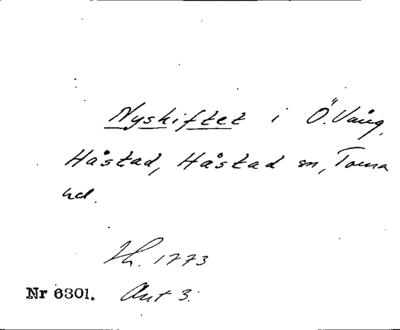 Nyskiftet i Ö. Vång,
Håstad, Håstad sn, Torna
hd.
Lh. 1773
Nr 6301. Akt 3.